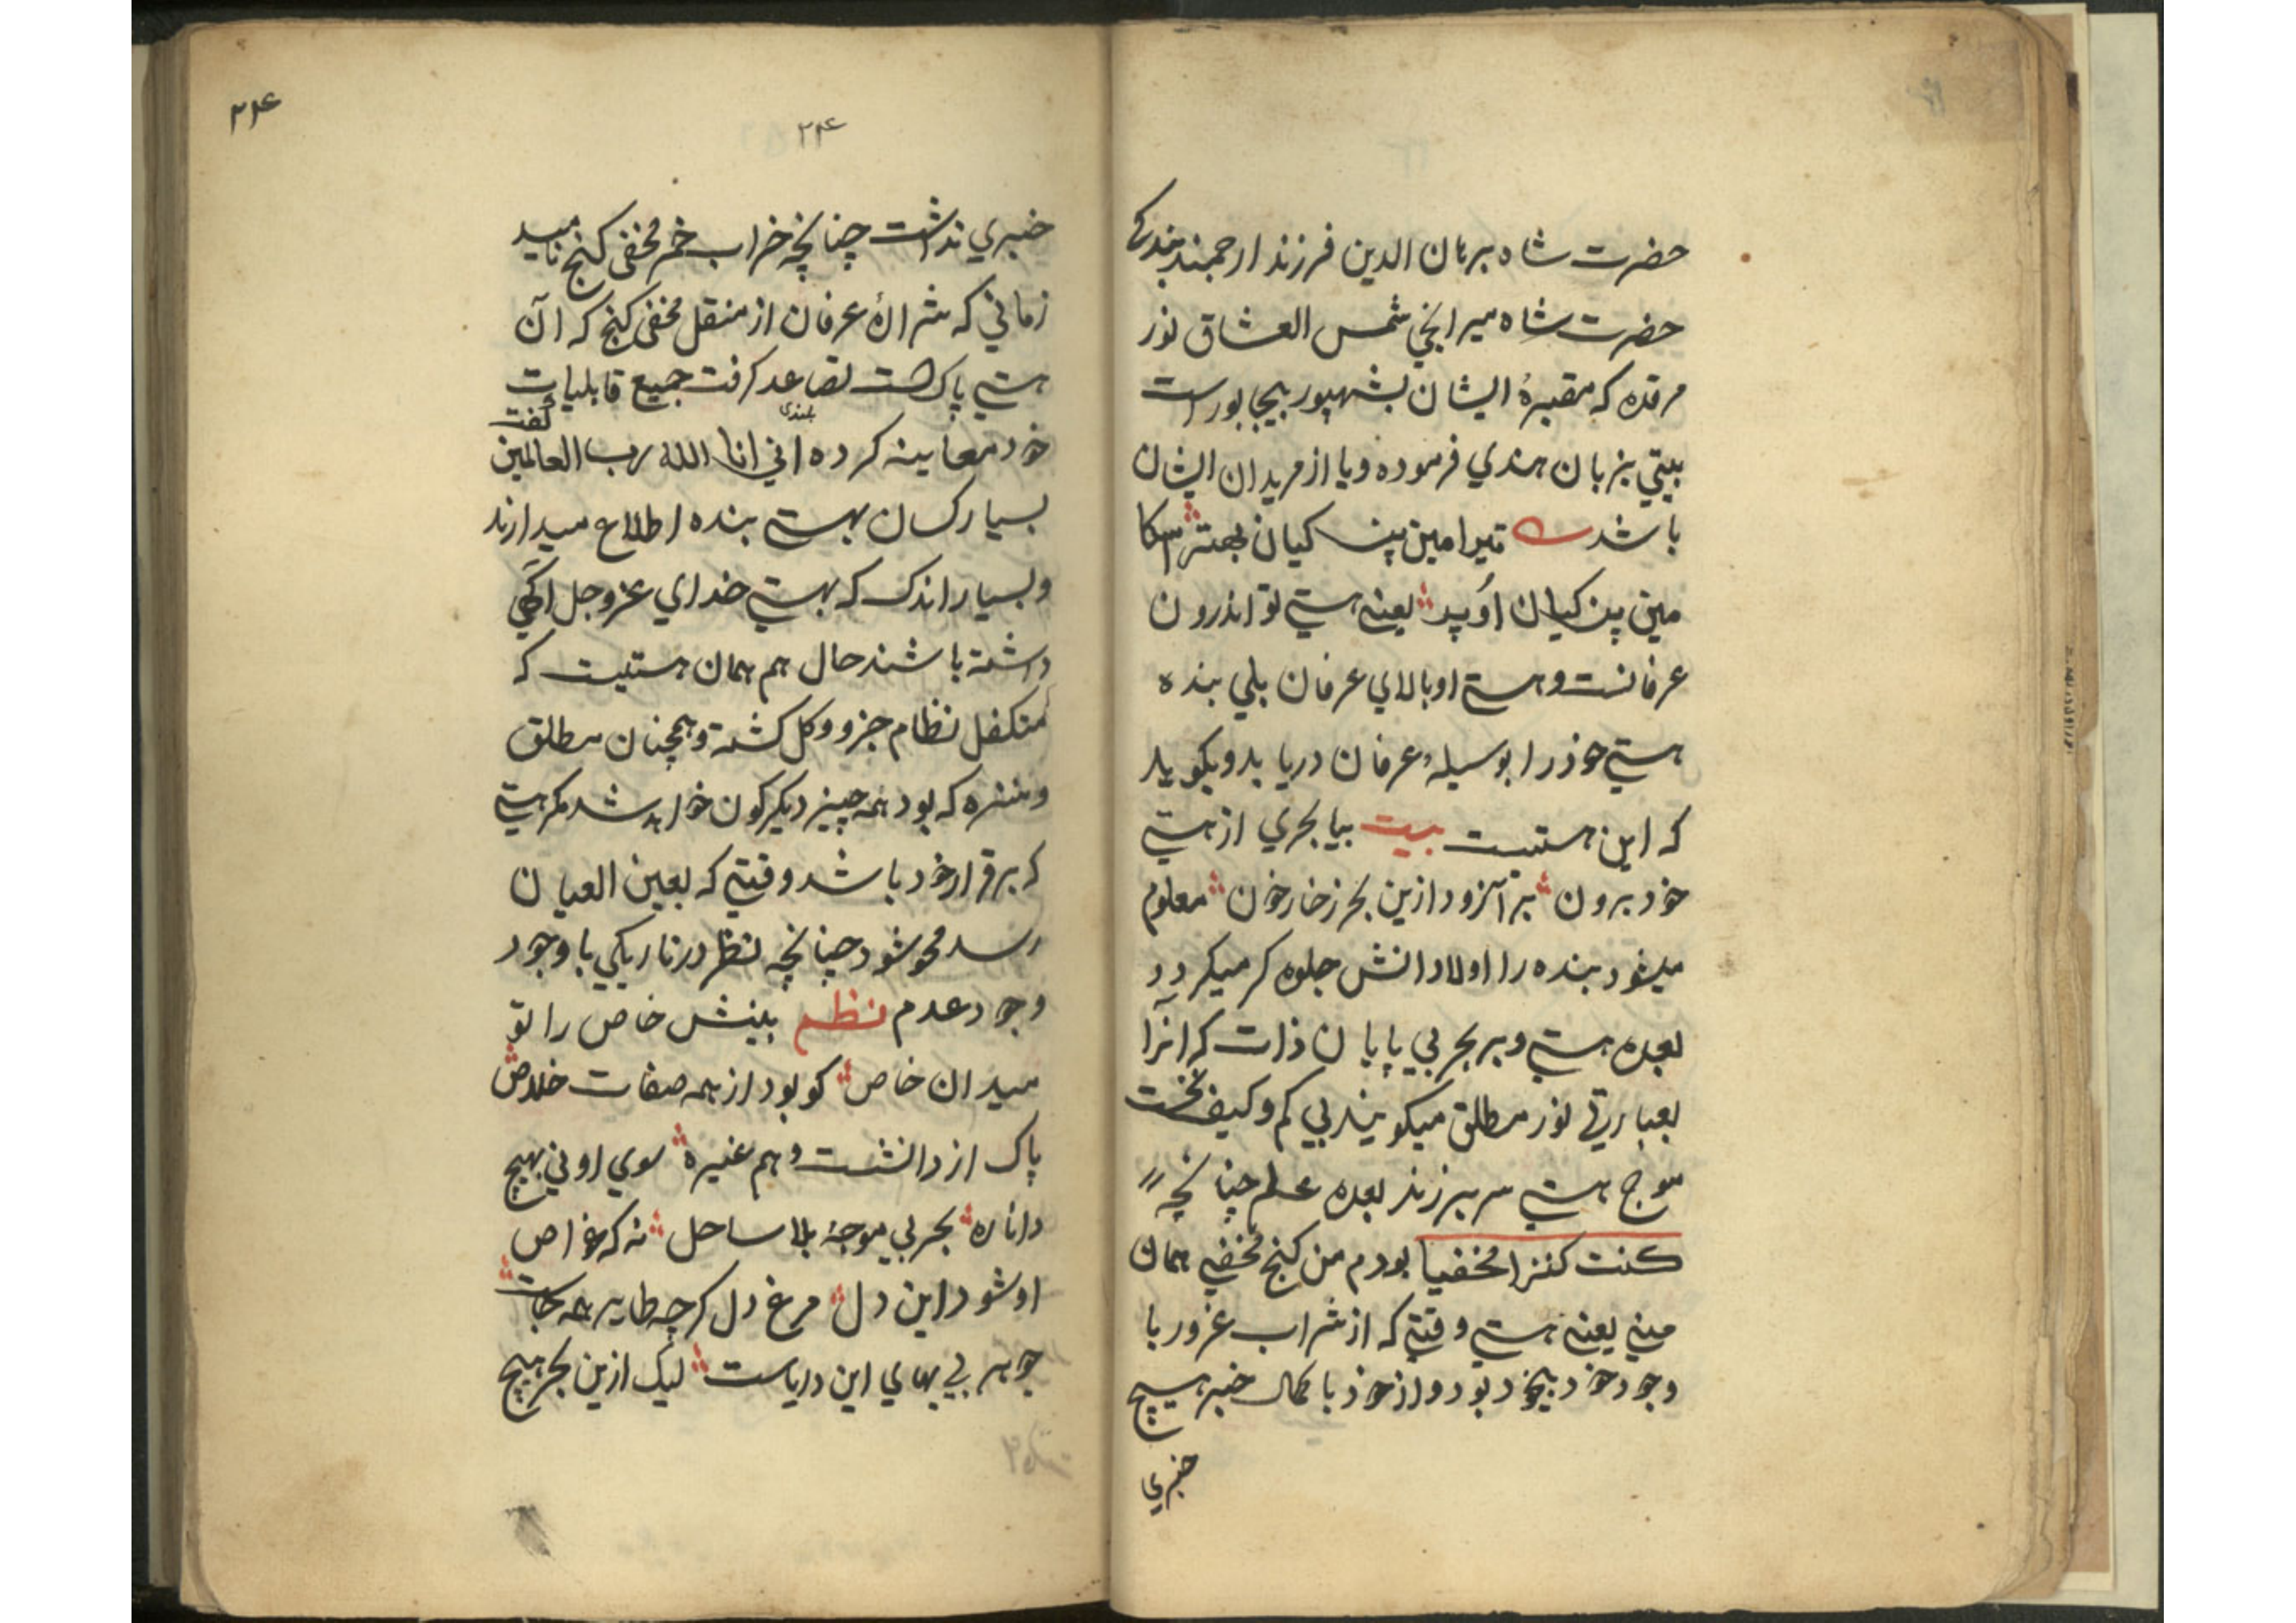 حضرت شاه برهان الدین فرزند ارجمند بندکی
حضرت شاه میرانجی شمس العشاق نور
مرقده که مقبرهٔ ایشان بشهپور بیجاپور است
بیتي بزبان هندي فرموده و یا از مریدان ایشان
باشد تیرا مین پنـ کیان بهتر اسکا
مین پن کیان اُوپر یعنے هستے تو اندرون
عرفانست و هستے او بالاي عرفان بلي بنده
هستے خود را بوسیلهٔ عرفان دریابد و بکوید
که این هستیست بیت بیا بحري از هستے
خود برون بر آ زود ازین بحر زخار خون معلوم
میشود بنده را اولا دانش جلوه کر میکردد
بعده هستے و بر بحر بي پایان ذات که آنرا
بعبارتے نور مطلق میکویند بي کم و کیف نخست
موج هستے سر برزند بعده علم چنانچه
کنت کنزا مخفیا بودم من کنج مخفے همان
منے یعنے هستے وقتے که از شراب غرور با
وجود خود بیخود بود و از خود با کمال خبر هیچ
خبري
۲۴
۲۴
خبري نداشت چنانچه خراب خمر مخفی کنج نامید
زماني که شرارهٔ عرفان از منقل مخفی کنج که آن
هستے پاکست تصاعد کرفت جمیع قابلیات
بلندی
خود معاینه کرده اني انا الله رب العالمین گفت
بسیار کسان بهستے بنده اطلاع میدارند
و بسیار اندک که بهستے خداي عز وجل آکهي
داشته باشند حال هم همان هستیست که
متکفل نظام جزو و کل کشته و همچنان مطلق
و منزه که بود همه چیز دیکرکون خواهد شد مکر هستے
که برقرار خود باشد وقتے که بعین العیان
رسد محو شود چنانچه نظر در تاریکي با وجود
وجود عدم نظم بینش خاص را تو
میدان خاص کو بود از همه صفات خلاص
پاک از دانشت و هم غیره سوي او ني بهیچ
دانا ره بحر بي موجهٔ بلا ساحل نه که غواص
او شود این دل مرغ دل کرچه طایر همه جاست
جوهر بے بهاي این دریاست لیک ازین بحر هیچ